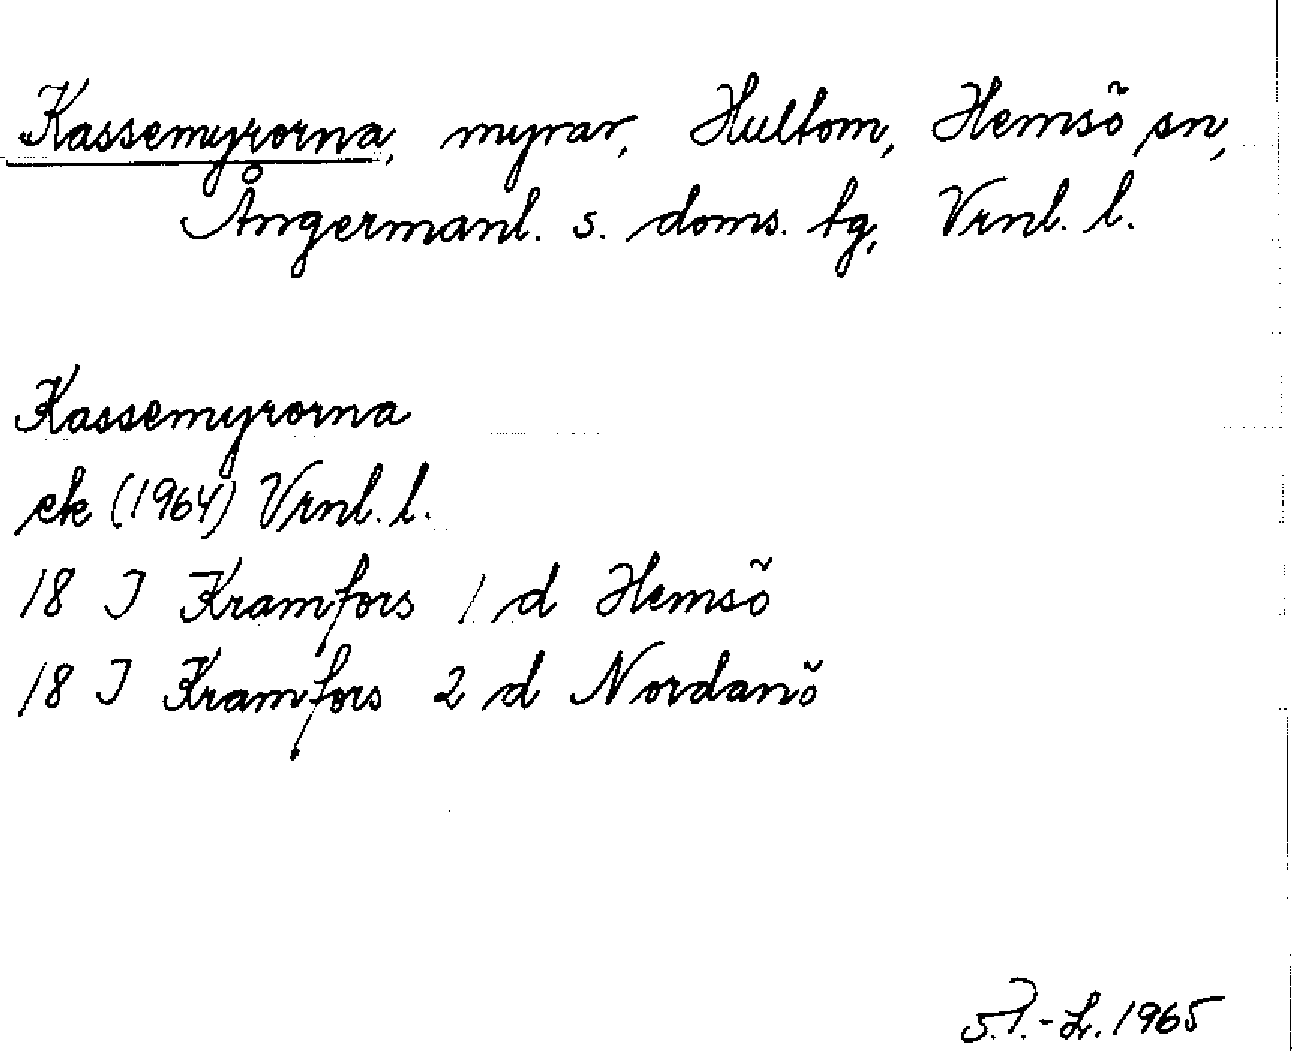 Kassemyrorna, myrar, Hultom, Hemsö sn,
Ångermanl. s. doms. tg, Vrnl. l.
Kassemyrorna
ek (1964) Vrnl. l.
18 I Kramfors 1 d Hemsö
18 I Kramfors 2 d Nordanö
1965